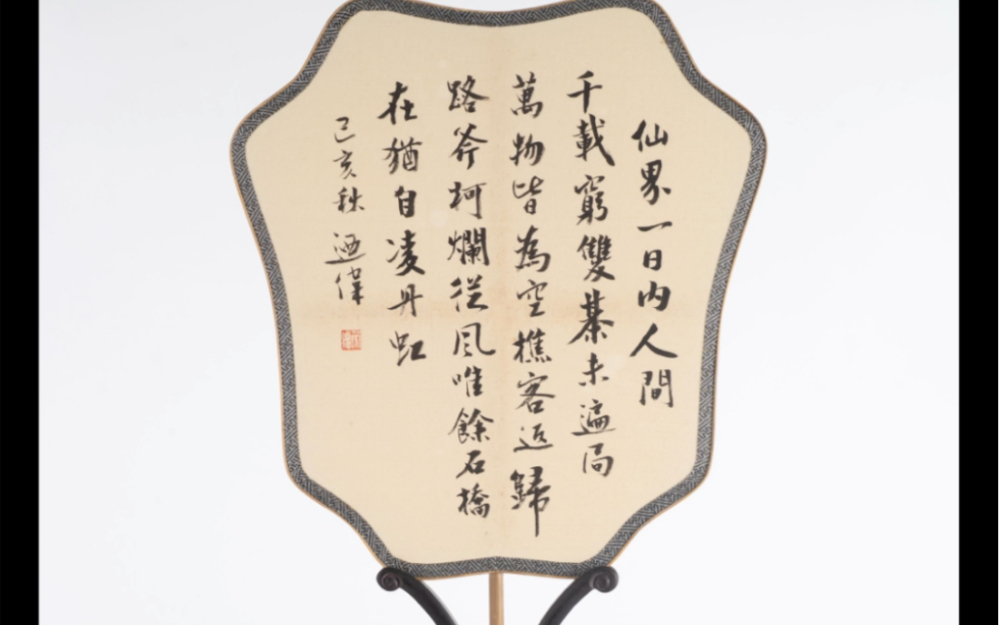 仙界一日内人間
千載窮雙棊未遍局
萬物皆為空樵客返歸
路斧柯爛從風唯餘石橋
在猶自凌丹虹
己亥秋迺偉